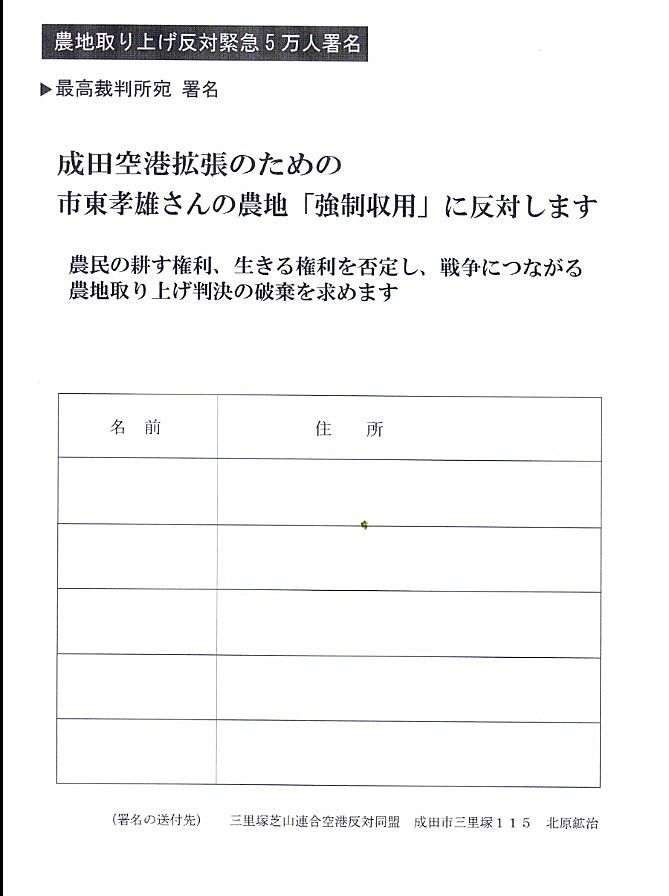 農地取り上げ反対緊急5万人署名
▶最高裁判所宛 署名
成田空港拡張のための
市東孝雄さんの農地「強制収用」に反対します
農民の耕す権利、生きる権利を否定し、戦争につながる
農地取り上げ判決の破棄を求めます
名 前 住 所
(署名の送付先) 三里塚芝山連合空港反対同盟 成田市三里塚115 北原鉱治